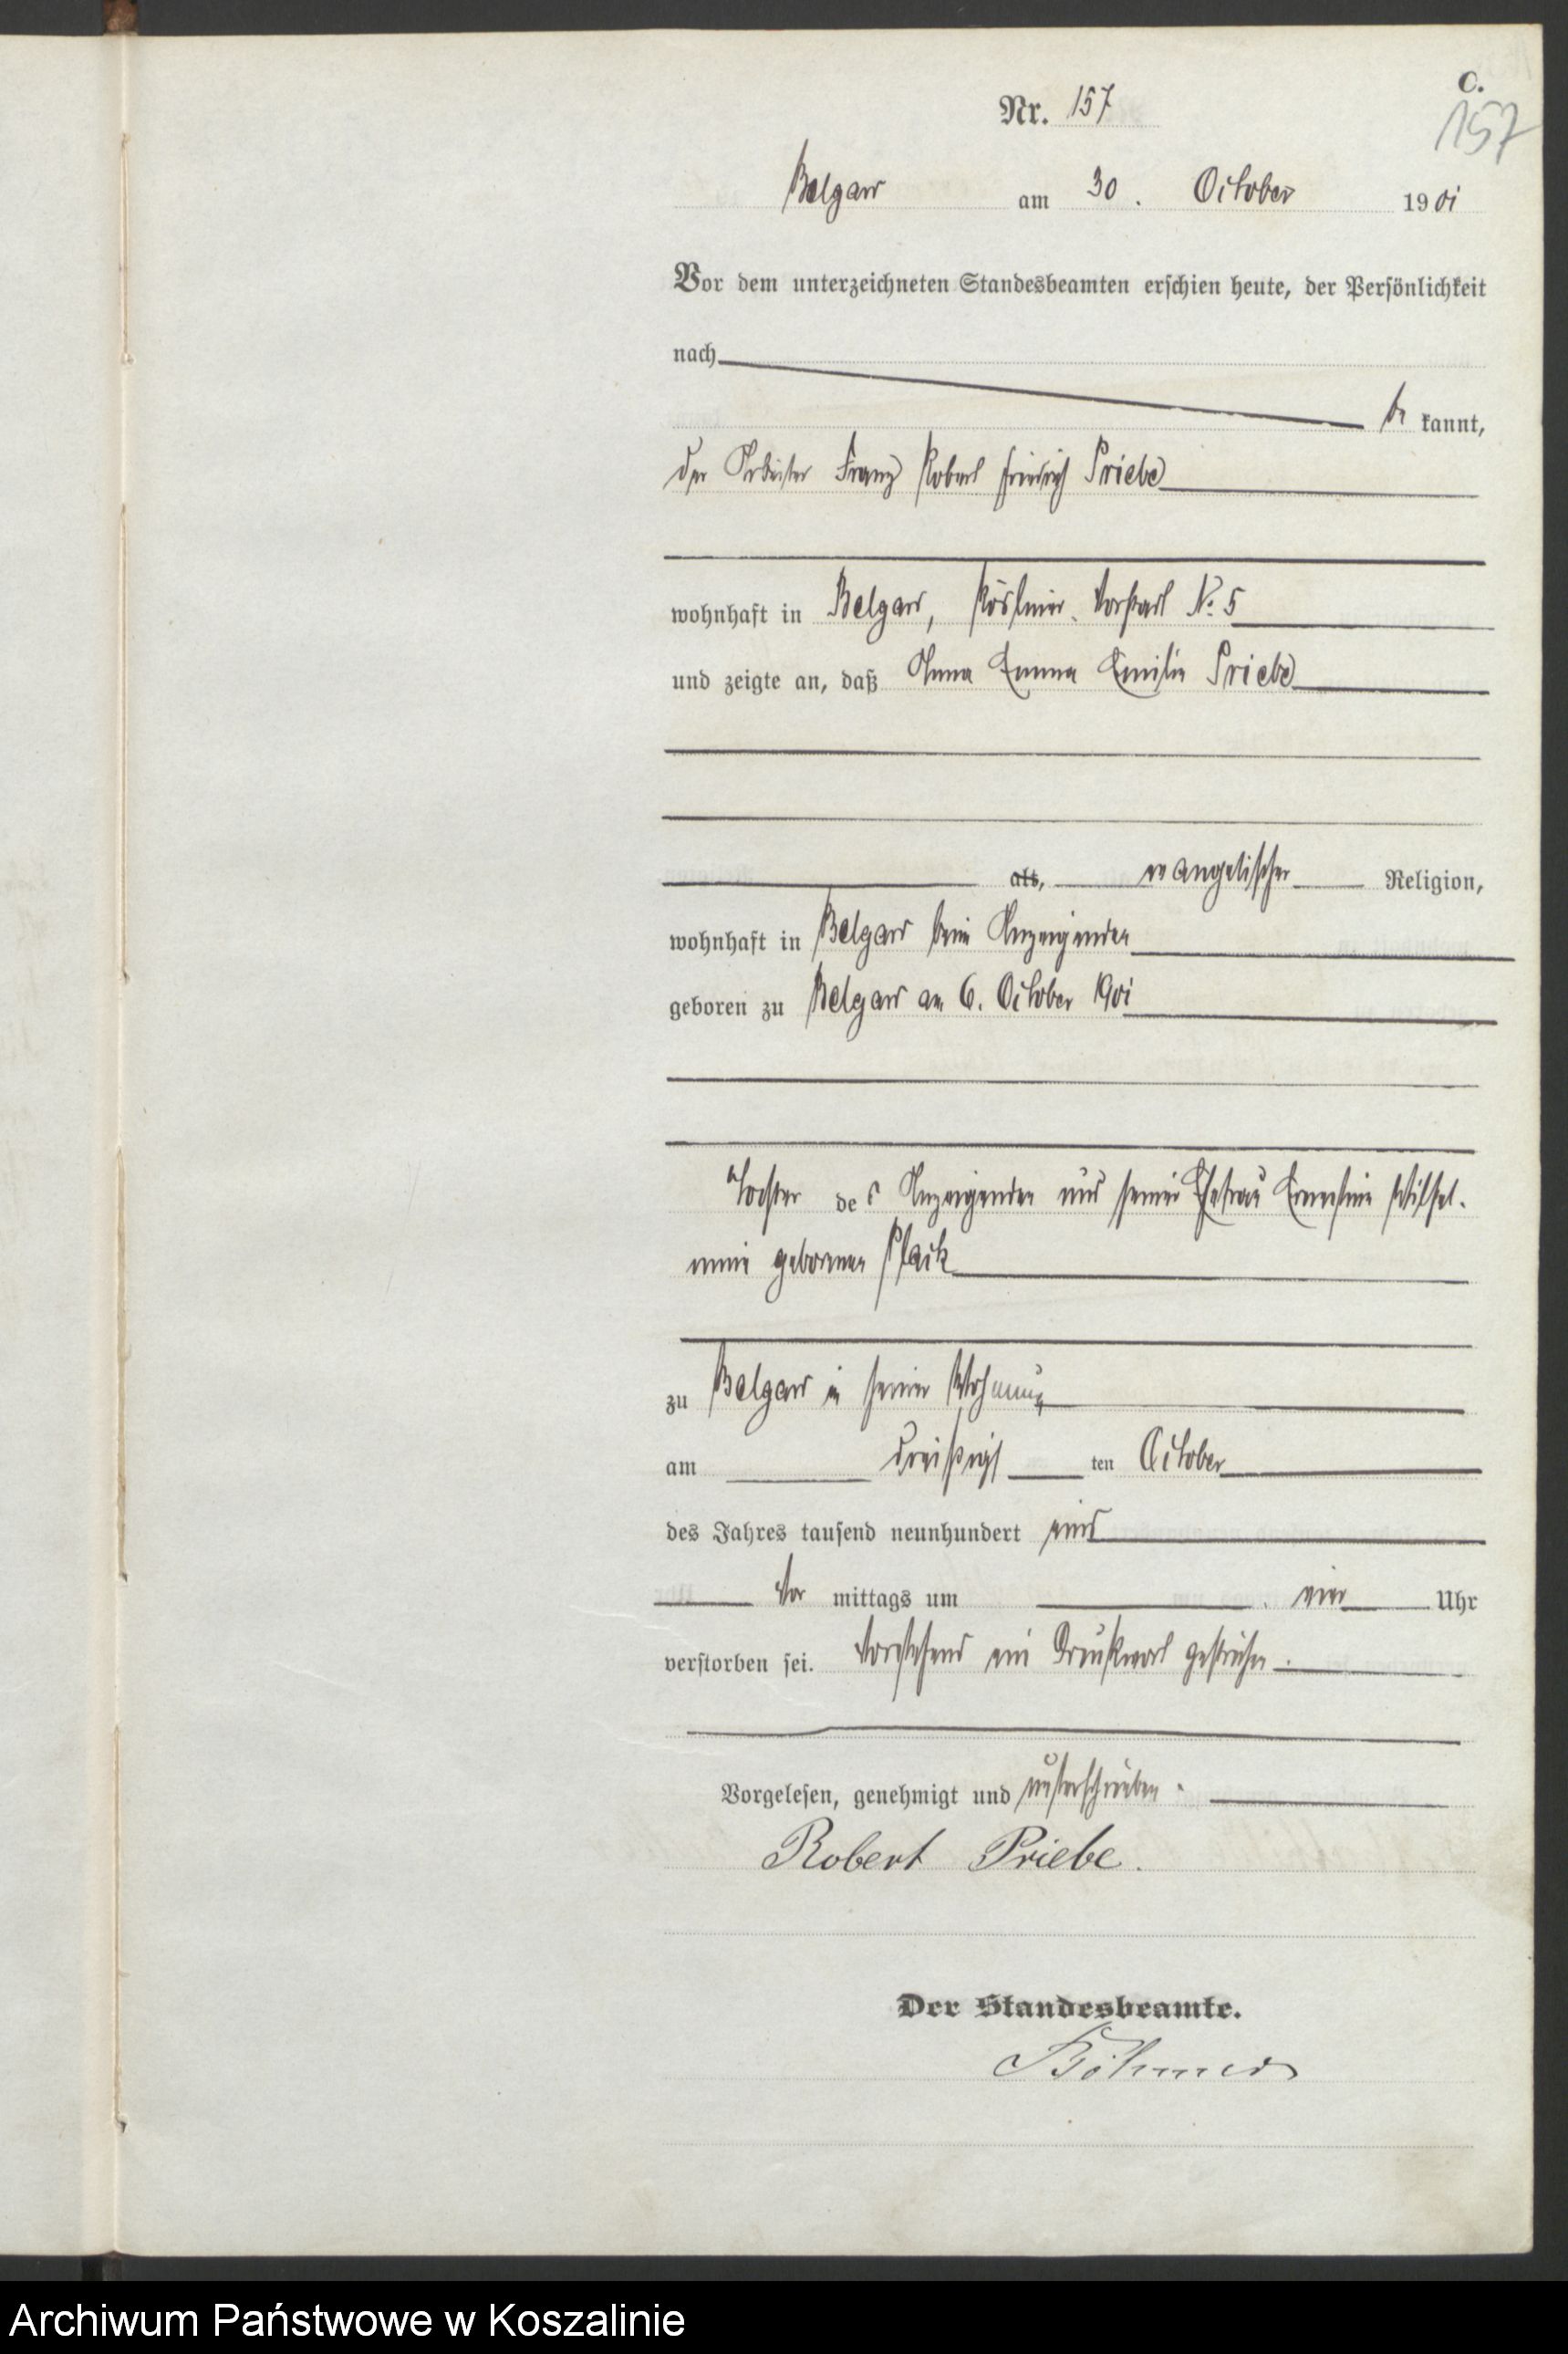 C.
Nr. 157
157
Belgard am 30. October 1901
Vor dem unterzeichneten Standesbeamten erschien heute, der Persönlichkeit
nach
be kannt,
der Arbeiter Franz Robert Friedrich Priebe
wohnhaft in Belgard, Kösliner Vorstadt No. 5
und zeigte an, daß Anna Emma Emilie Priebe
alt, evangelischer Religion,
wohnhaft in Belgard beim Anzeigenden
geboren zu Belgard am 6. October 1901
Tochter des Anzeigenden und seiner Ehefrau Ernestine Wilhel-
mine geborenen
zu Belgard in seiner Wohnung
am dreißigs ten October
des Jahres tausend neunhundert eins
Vor mittags um vier Uhr
verstorben sei. Vorstehend ein Druckwort gestrichen.
Vorgelesen, genehmigt und unterschrieben.
Robert Priebe.
Der Standesbeamte.
Böhmer
Archiwum Państwowe w Koszalinie